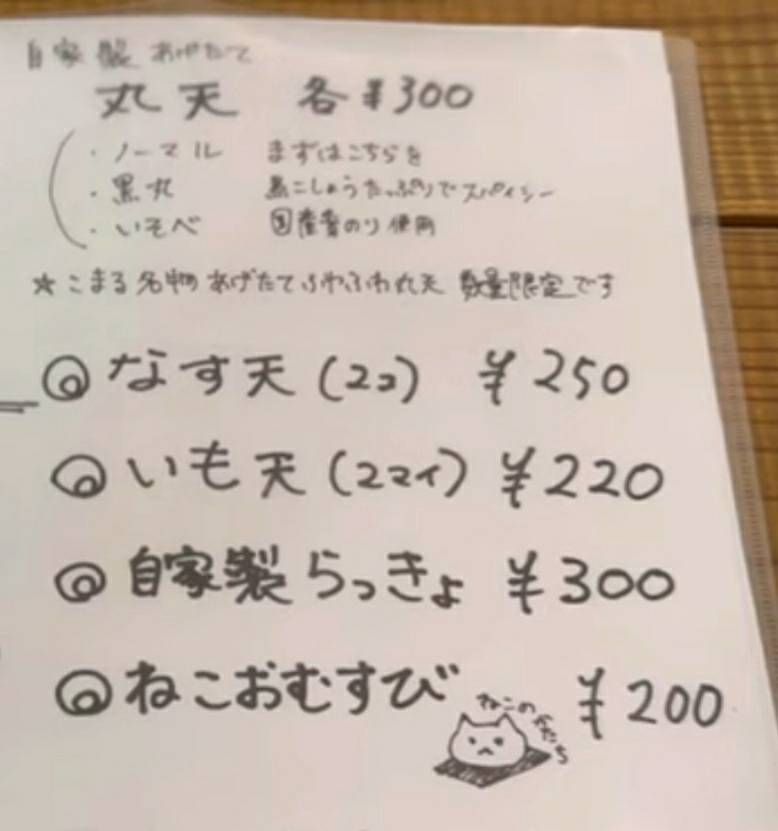 自家製 あげたて
丸天 各¥300
・ノーマル まずはこちらを
・黒丸 黒こしょうたっぷりでスパイシー
・いそべ 国産青のり使用
★こまる名物 あげたてふわふわ丸天 数量限定です
◎なす天(2コ) ¥250
◎いも天(2マイ) ¥220
◎自家製らっきょ ¥300
◎ねこおむすび ¥200
ねこのかたち